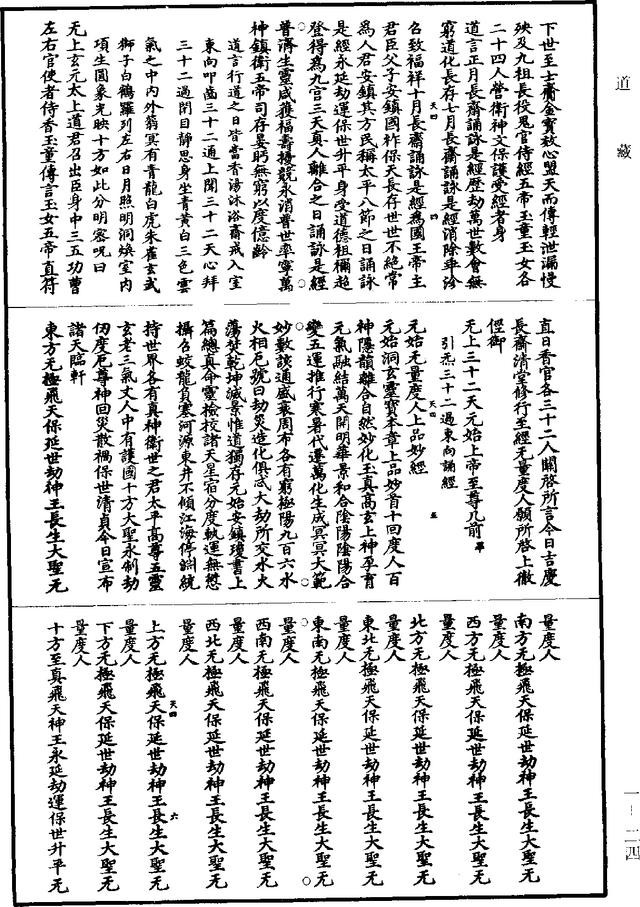 道藏
下世至士齋金寶效心盟天而傳輕泄漏慢
殃及九祖長役鬼官侍經五帝玉童玉女各
二十四人營衛神文保護受經者身
道言正月長齋誦詠是經歷劫萬世數會無
窮道化長存七月長齋誦詠是經消除乖沴
召致福祥十月長齋誦詠是經為國王帝主
君臣父子安鎮國祚保天長存世世不絕常
為人君安鎮其方民稱太平八節之日誦詠
是經永延劫運保世升平身受道德祖禰超
登得為九宮三天真人離合之日誦詠是經
普濟生靈咸獲福壽揚兢永消普世率寧萬
神鎮衛五帝司存晏躬無窮以度億齡
道言行道之日皆當香湯沐浴齋戒入室
東向叩齒三十二通上聞三十二天心拜
三十二過閉目靜思身坐青黃白三色雲
氣之中內外蓊冥有青龍白虎朱雀玄武
獅子白鶴羅列左右日月照明洞煥室內
項生圓象光映十方如此分明密呪曰
无上玄元太上道君召出臣身中三五功曹
左右官使者侍香玉童傳言玉女五帝直符
直日香官各三十二人關啓所言今日吉慶
長齋清堂修行至經无量度人願所啓上徹
徑御
无上三十二天元始上帝至尊几前畢
引炁三十二過東向誦經
元始无量度人上品妙經
元始洞玄靈寶本章上品妙首十迴度人百
神隱韻離合自然妙化玉真高玄上神孕育
元氣融結萬天開明華景和合陰陽陰陽合
變五運推行寒暑代遷萬化生成冥冥大範
妙數該通盛衰周布各有窮極陽九百六水
火相厄號曰劫災造化俱忒大劫所交水火
蕩焚乾坤滅景惟道獨存元始安鎮瓊書上
篇總真命靈檢校諸天星宿分度軌運無愆
攝召蛟龍負塞河源東井不傾江海停淵統
持世界各有真神衛世之君太平高尊五靈
玄老三氣丈人中有護國十方大聖永制劫
仞度厄尊神回災散禍保世清貞今日宣布
諸天臨軒
東方无極飛天保延世劫神王長生大聖无
量度人
南方无極飛天保延世劫神王長生大聖无
量度人
西方无極飛天保延世劫神王長生大聖无
量度人
北方无極飛天保延世劫神王長生大聖无
量度人
東北无極飛天保延世劫神王長生大聖无
量度人
東南无極飛天保延世劫神王長生大聖无
量度人
西南无極飛天保延世劫神王長生大聖无
量度人
西北无極飛天保延世劫神王長生大聖无
量度人
上方无極飛天保延世劫神王長生大聖无
量度人
下方无極飛天保延世劫神王長生大聖无
量度人
十方至真飛天神王永延劫運保世升平无
一－二四